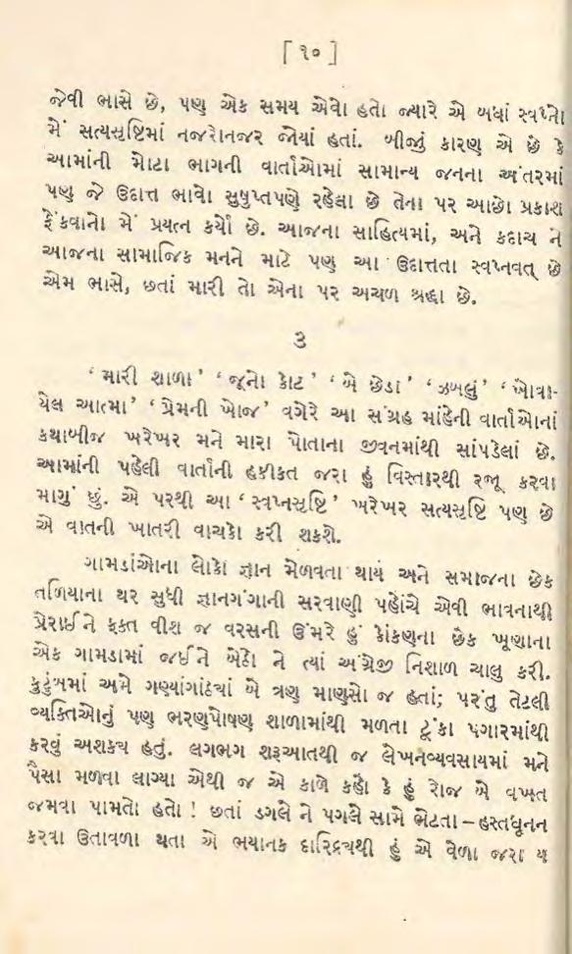 [ ૧૦ ]
જેવી ભાસે છે, પણ એક સમય એવો હતો જ્યારે એ બધાં સ્વપ્નો
મેં સત્યસૃષ્ટિમાં નજરોનજર જોયાં હતાં. બીજું કારણ એ છે કે
આમાંની મોટા ભાગની વાર્તાઓમાં સામાન્ય જનના અંતરમાં
પણ જે ઉદાત્ત ભાવો સુષુપ્તપણે રહેલા છે તેના પર આછો પ્રકાશ
ફેંકવાનો મેં પ્રયત્ન કર્યો છે. આજના સાહિત્યમાં, અને કદાચ ને
આજના સામાજિક મનને માટે પણ આ ઉદાત્તતા સ્વપ્નવત્ છે
એમ ભાસે, છતાં મારી તો એના પર અચળ શ્રદ્ધા છે.
૩
‘મારી શાળા’ ‘જૂનો કોટ’ ‘બે છેડા’ ‘ઝબલું’ ‘ખોવા-
યેલ આત્મા’ ‘પ્રેમની ખોજ’ વગેરે આ સંગ્રહ માંહેની વાર્તાઓનાં
કથાબીજ ખરેખર મને મારા પોતાના જીવનમાંથી સાંપડેલાં છે.
આમાંની પહેલી વાર્તાની હકીકત જરા હું વિસ્તારથી રજૂ કરવા
માગું છું. એ પરથી આ ‘સ્વપ્નસૃષ્ટિ’ ખરેખર સત્યસૃષ્ટિ પણ છે
એ વાતની ખાતરી વાચકો કરી શકશે.
ગામડાંઓના લોકો જ્ઞાન મેળવતા થાય અને સમાજના છેક
તળિયાના થર સુધી જ્ઞાનગંગાની સરવાણી પહોંચે એવી ભાવનાથી
પ્રેરાઈને ફક્ત વીશ જ વરસની ઉંમરે હું કોંકણના છેક ખૂણાના
એક ગામડામાં જઈને બેઠો ને ત્યાં અંગ્રેજી નિશાળ ચાલુ કરી.
કુટુંબમાં અમે ગણ્યાંગાંઠ્યાં બે ત્રણ માણસો જ હતાં; પરંતુ તેટલી
વ્યક્તિઓનું પણ ભરણપોષણ શાળામાંથી મળતા ટૂંકા પગારમાંથી
કરવું અશક્ય હતું. લગભગ શરૂઆતથી જ લેખનવ્યવસાયમાં મને
પૈસા મળવા લાગ્યા એથી જ એ કાળે કહો કે હું રોજ બે વખત
જમવા પામતો હતો! છતાં ડગલે ને પગલે સામે ભેટતા–હસ્તધૂનન
કરવા ઉતાવળા થતા એ ભયાનક દારિદ્રયથી હું એ વેળા જરા ય